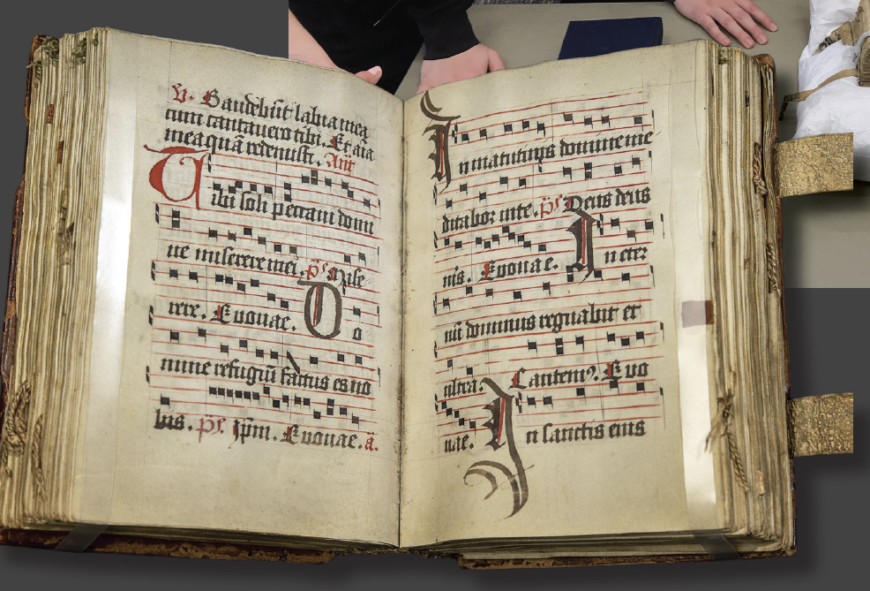 v. Gaudebūt labia mea
cum cantavero tibi. Et aīa
mea quā redemisti. Añt
Tibi soli peccavi domi
ne miserere mei. ps Mise
rere. Evovae. Do
mine refugiū factus es no
bis. ps ipm. Evovae. a.
In matutinis domine me
ditabor in te. ps Deus deus
m̄s. Evovae. In eter
nū dominus regnabit et
ultra. Cantem9. Evo
vae. In sanctis eius